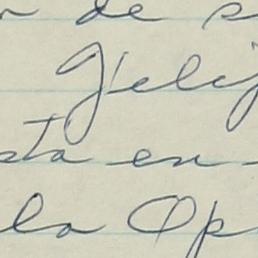 de s
Feli
sta en
la Op